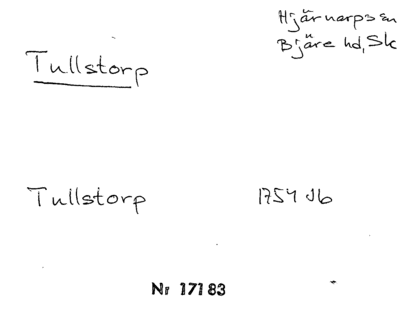 Hjärnarps sn
Bjäre hd, Sk
Tullstorp
Tullstorp 1754 Jb
Nr 17183